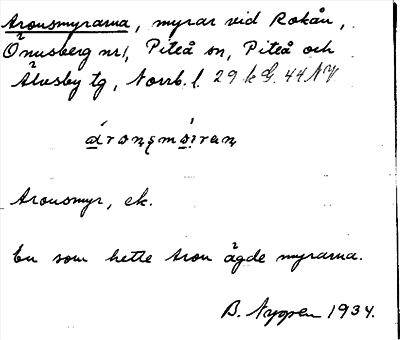 Aronsmyrarna, myrar vid Rokån,
Önusberg nr 1, Piteå sn, Piteå och
Älvsby tg, Norrb. l. 29 k G. 44 NV
Aronsmyr, ek.
En som hette Aron ägde myrarna.
B. Nyppen 1934.